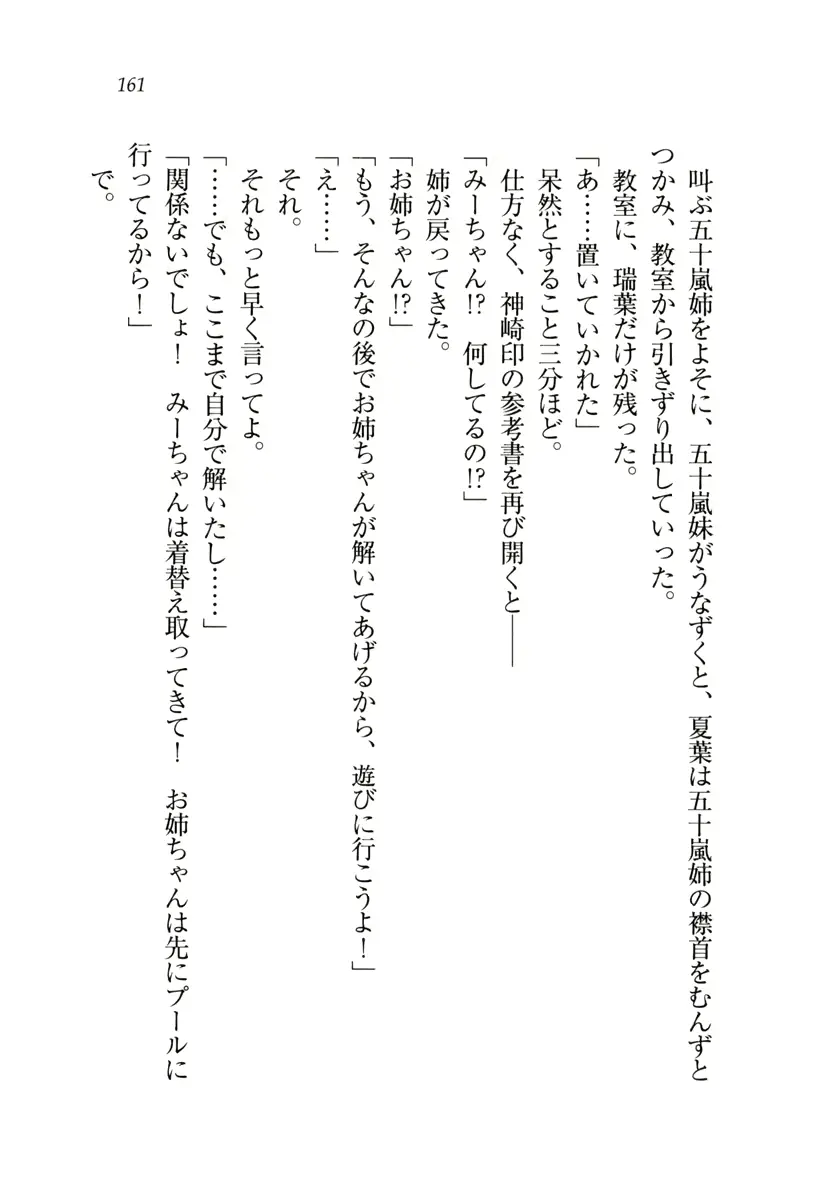 161
叫ぶ五十嵐姉をよそに、五十嵐妹がうなずくと、夏葉は五十嵐姉の襟首をむんずと
つかみ、教室から引きずり出していった。
教室に、瑞葉だけが残った。
「あ……置いていかれた」
呆然とすること三分ほど。
仕方なく、神崎印の参考書を再び開くと――
「みーちゃん!?　何してるの!?」
姉が戻ってきた。
「お姉ちゃん!?」
「もう、そんなの後でお姉ちゃんが解いてあげるから、遊びに行こうよ！」
「え……」
それ。
それもっと早く言ってよ。
「……でも、ここまで自分で解いたし……」
「関係ないでしょ！　みーちゃんは着替え取ってきて！　お姉ちゃんは先にプールに
行ってるから！」
で。